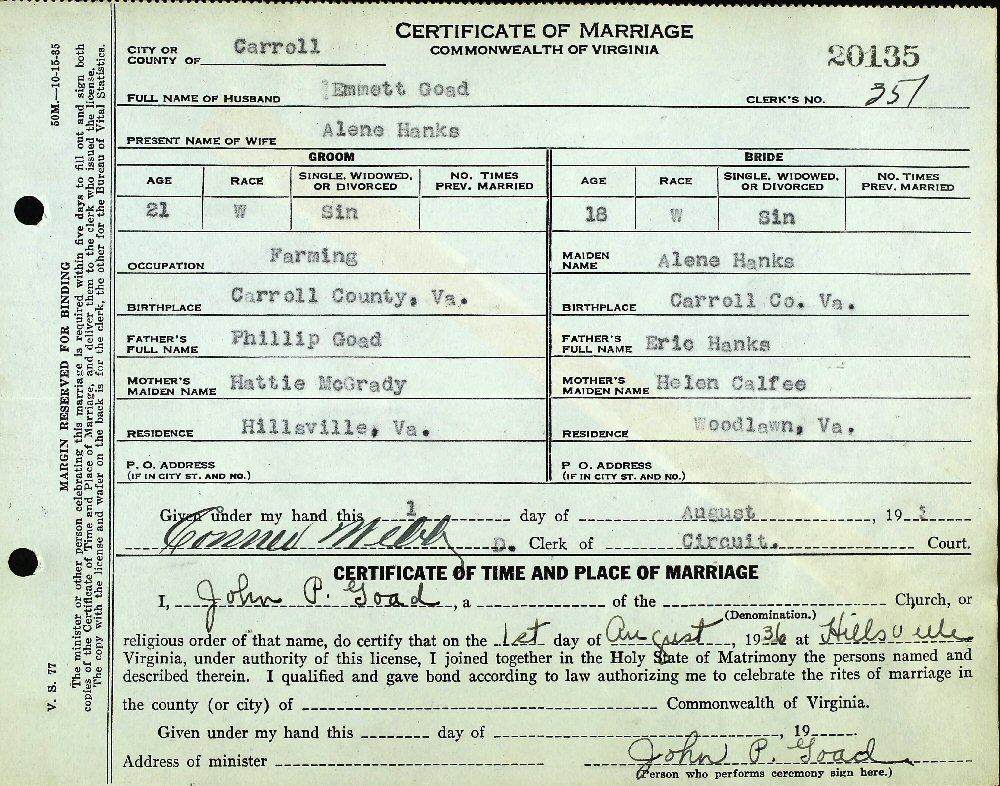 CERTIFICATE OF MARRIAGE
COMMONWEALTH OF VIRGINIA
20135
CITY OR COUNTY OF Carroll
FULL NAME OF HUSBAND Emmett Goad CLERK'S NO. 351
PRESENT NAME OF WIFE Alene Hanks
GROOM BRIDE
AGE RACE SINGLE, WIDOWED, OR DIVORCED NO. TIMES PREV. MARRIED AGE RACE SINGLE, WIDOWED, OR DIVORCED NO. TIMES PREV. MARRIED
21 W Sin 18 W Sin
OCCUPATION Farming MAIDEN NAME Alene Hanks
BIRTHPLACE Carroll County, Va. BIRTHPLACE Carroll Co. Va.
FATHER'S FULL NAME Phillip Goad FATHER'S FULL NAME Eric Hanks
MOTHER'S MAIDEN NAME Hattie McGrady MOTHER'S MAIDEN NAME Helen Calfee
RESIDENCE Hillsville, Va. RESIDENCE Woodlawn, Va.
P. O. ADDRESS (IF IN CITY ST. AND NO.) P O. ADDRESS (IF IN CITY ST. AND NO.)
Given under my hand this 1 day of August, 193
Webb D. Clerk of Circuit. Court.
CERTIFICATE OF TIME AND PLACE OF MARRIAGE
I, John P. Goad, a of the Church, or
(Denomination.)
religious order of that name, do certify that on the 1st day of August, 1936 at Hillsville
Virginia, under authority of this license, I joined together in the Holy State of Matrimony the persons named and
described therein. I qualified and gave bond according to law authorizing me to celebrate the rites of marriage in
the county (or city) of Commonwealth of Virginia.
Given under my hand this day of , 19
Address of minister John P. Goad
(Person who performs ceremony sign here.)
V. S. 77 MARGIN RESERVED FOR BINDING 50M.—10-15-35
The minister or other person celebrating this marriage is required within five days to fill out and sign both
copies of the Certificate of Time and Place of Marriage, and deliver them to the clerk who issued the license.
The copy with the license and wafer on the back is for the clerk, the other for the Bureau of Vital Statistics.